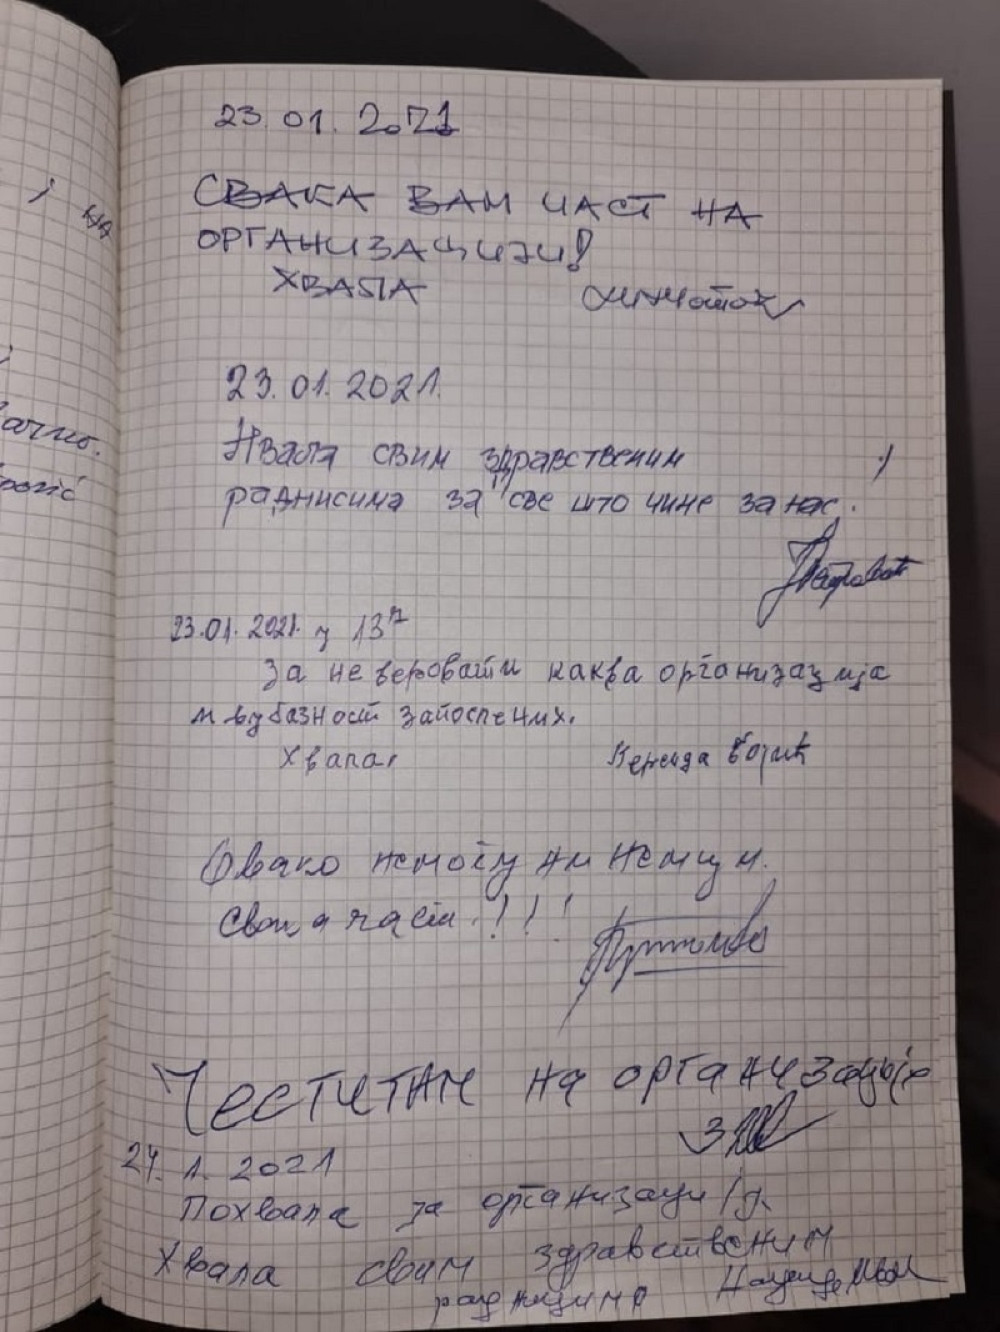 23.01.2021
СВАКА ВАМ ЧАСТ НА
ОРГАНИЗАЦИЈИ!
ХВАЛА
23.01.2021.
Хвала свим здравственим
раднисима за све што чине за нас.
23.01.2021. у 13
За не веровати каква организација
и љубазност запослених.
Хвала
Овако немогу ни Немци.
Свака част!!!
Честитам на организацији
24.1.2021
Похвала за организацију
Хвала свим здравственим
радницима